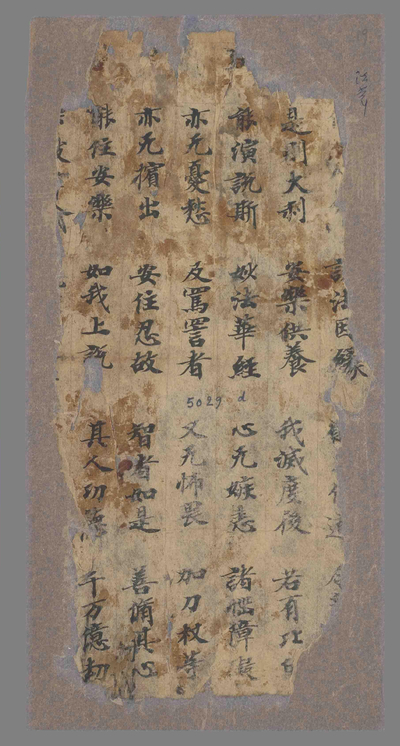 19
法因緣
是則大利 安樂供養 我滅度後 若有比
能演說斯 妙法華經 心无嫉恚 諸惱障
亦无憂愁 及罵詈者 又无怖畏 加刀杖等
5029 d
亦无擯出 安住忍故 智者如是 善脩其心
能住安樂 如我上說 其人功德 千万億劫